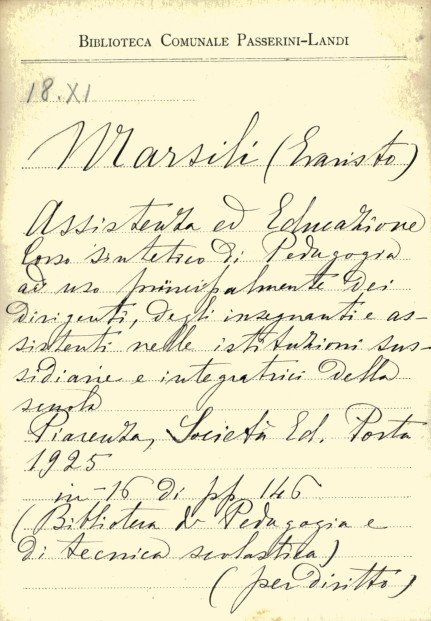 BIBLIOTECA COMUNALE PASSERINI-LANDI
18.XI
Marsili (Evaristo)
Assistenza ed Educazione
Corso sintetico di Pedagogia
ad uso principalmente dei
dirigenti, degli insegnanti e as-
sistenti nelle istituzioni sus-
sidiarie e integratrici della
scuola
Piacenza, Società Ed. Porta
1925
in-16 di pp. 146
(Biblioteca di Pedagogia e
di tecnica scolastica)
(per diritto)